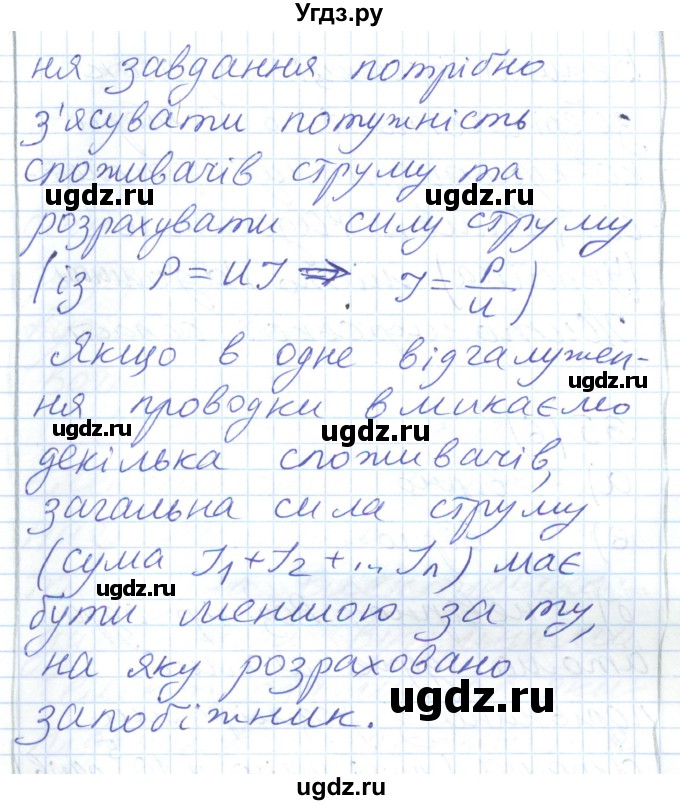 Угдз.ру
ня завдання потрібно
з'ясувати потужність
споживачів струму та
ugdz.ru ugdz.ru
розрахувати силу струму
(із P = UI ⇒ I = P/U)
Якщо в одне відгалужен-
ugdz.ru
ня проводки вмикаємо
ugdz.ru ugdz.ru
декілька споживачів,
загальна сила струму
(сума I₁ + I₂ + ... Iₙ) має
ugdz.ru
бути меншою за ту,
на яку розраховано
ugdz.ru
запобіжник.
ugdz.ru